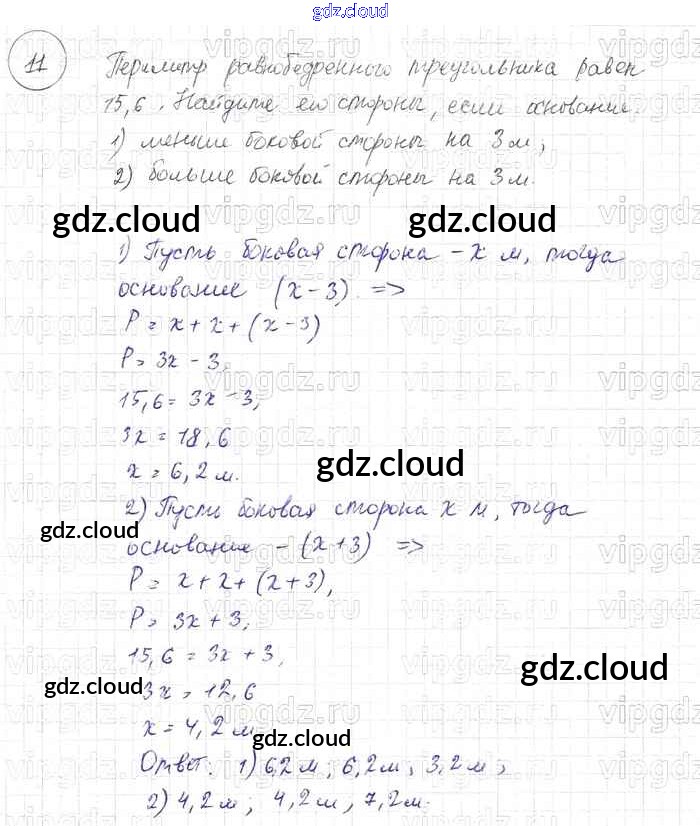 gdz.cloud
11
Периметр равнобедренного треугольника равен
15,6. Найдите его стороны, если основание:
1) меньше боковой стороны на 3 м;
2) больше боковой стороны на 3 м.
gdz.cloud gdz.cloud
1) Пусть боковая сторона - х м, тогда
основание (х-3). =>
P = x + x + (x-3)
P = 3x - 3,
15,6 = 3x - 3,
3x = 18,6
x = 6,2 м.
gdz.cloud
2) Пусть боковая сторона х м, тогда
gdz.cloud
основание - (х+3) =>
P = x + x + (x+3),
P = 3x + 3,
15,6 = 3x + 3,
gdz.cloud
gdz.cloud
3x = 12,6
x = 4,2 м
gdz.cloud
Ответ: 1) 6,2 м; 6,2 м; 3,2 м;
2) 4,2 м; 4,2 м; 7,2 м.